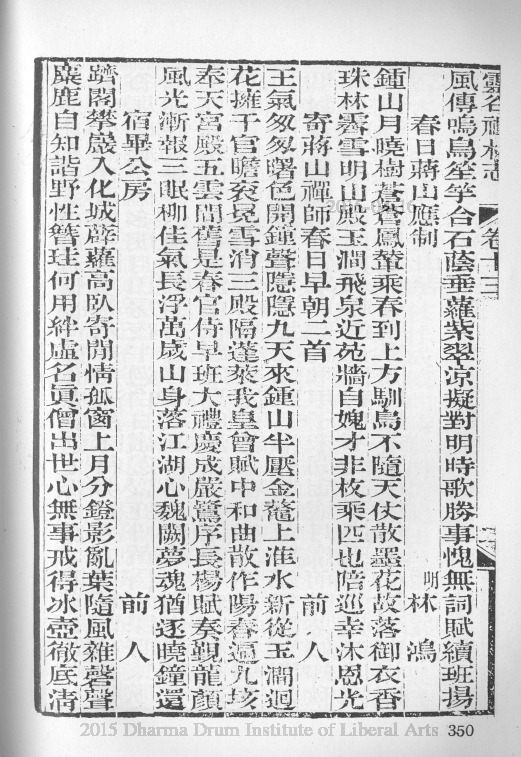 靈谷禪林志 卷十三
風傳鳴鳥笙竽合石蔭垂蘿紫翠涼擬對明時歌勝事愧無詞賦續班揚
春日蔣山應制 明 林鴻
鍾山月曉樹蒼蒼鳳輦乘春到上方馴鳥不隨天仗散曇花故落御衣香
珠林霽雪明山殿玉澗飛泉近苑牆自媿才非枚乘匹也陪巡幸沐恩光
寄蔣山禪師春日早朝二首 前人
王氣匆匆曙色開鐘聲隱隱九天來鍾山半壓金鼇上淮水新從玉澗迴
花擁千官瞻袞冕雪消三殿隔蓬萊我皇曾賦中和曲散作陽春遍九垓
奉天宮殿五雲間舊是春官侍早班大禮慶成嚴鷺序長楊賦奏覲龍顏
風光漸報三眠柳佳氣長浮萬歲山身落江湖心魏闕夢魂猶逐曉鐘還
宿畢公房 前人
躋閣攀巖入化城薜蘿高臥寄閒情孤窗上月分鐙影亂葉隨風雜磬聲
麋鹿自知諧野性簪珪何用絆虛名眞僧出世心無事戒得冰壺徹底清
2015 Dharma Drum Institute of Liberal Arts 350